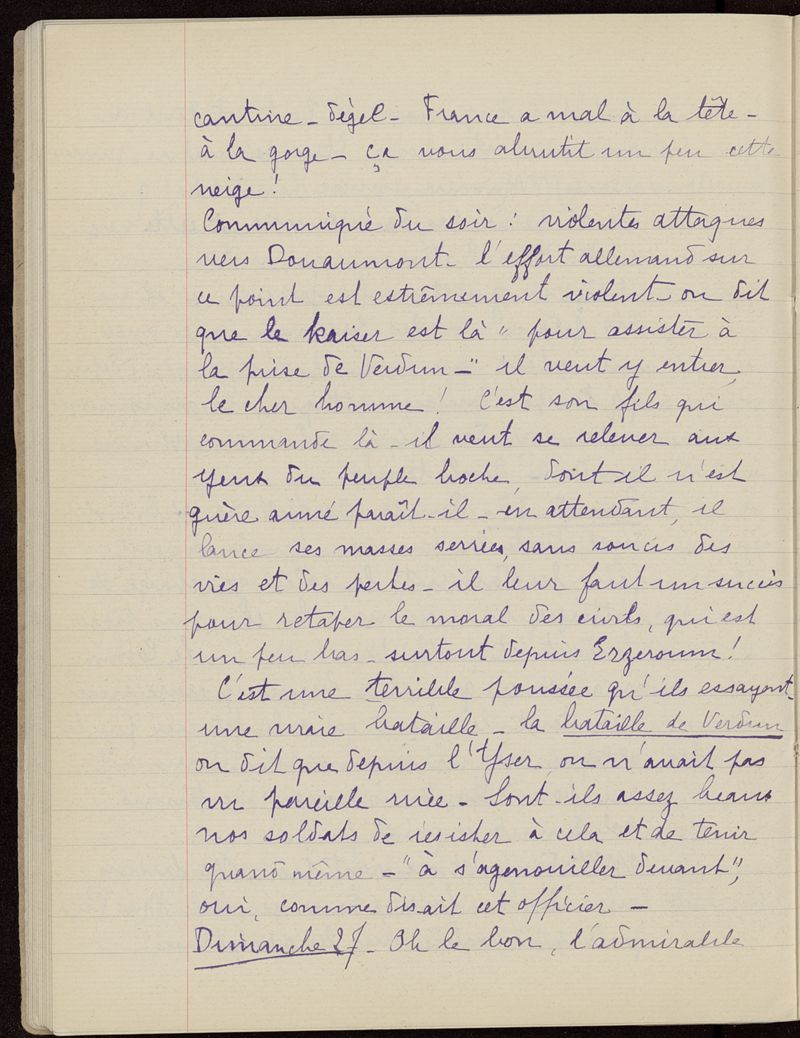 cantine - dégel - France a mal à la tête -
à la gorge - ça vous abrutit un peu cette
neige !
Communiqué du soir : violentes attaques
vers Douaumont - l'effort allemand sur
ce point est estrêmement violent - on dit
que le Kaiser est là " pour assister à
la prise de Verdun - " il veut y entrer,
le cher homme ! C'est son fils qui
commande là - il veut se relever aux
yeux du peuple boche, dont il n'est
guère aimé paraît-il - en attendant, il
lance ses masses serrées, sans soucis des
vies et des pertes - il leur faut un succès
pour retaper le moral des civils, qui est
un peu bas - surtout depuis Erzeroum !
C'est une terrible poussée qu'ils essayent -
une vraie bataille - la bataille de Verdun
on dit que depuis l'Yser, on n'avait pas
vu pareille ruée - Sont-ils assez beaux
nos soldats de résister à cela et de tenir
quand même - "à s'agenouiller devant",
oui, comme disait cet officier -
Dimanche 27 - Oh le bon, l'admirable